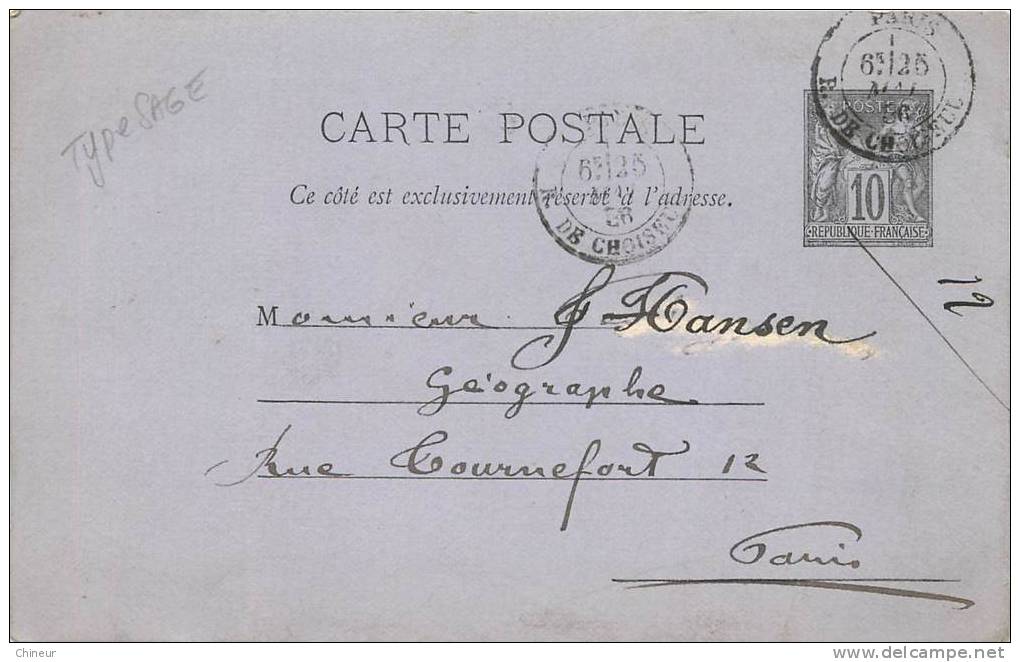 PARIS
6E 25
MAI
86
R. DE CHOISEUL
TYPE SAGE
CARTE POSTALE
POSTES
10
REPUBLIQUE FRANÇAISE
Ce côté est exclusivement réservé à l'adresse.
6E 25
MAI
86
R. DE CHOISEUL
Monsieur J Hansen
Géographe
Rue Tournefort 12
Paris
Chineur
www.delcampe.net